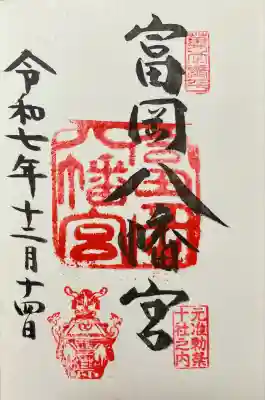 富岡八幡宮
令和七年十二月十四日
元准勅祭
十社之内